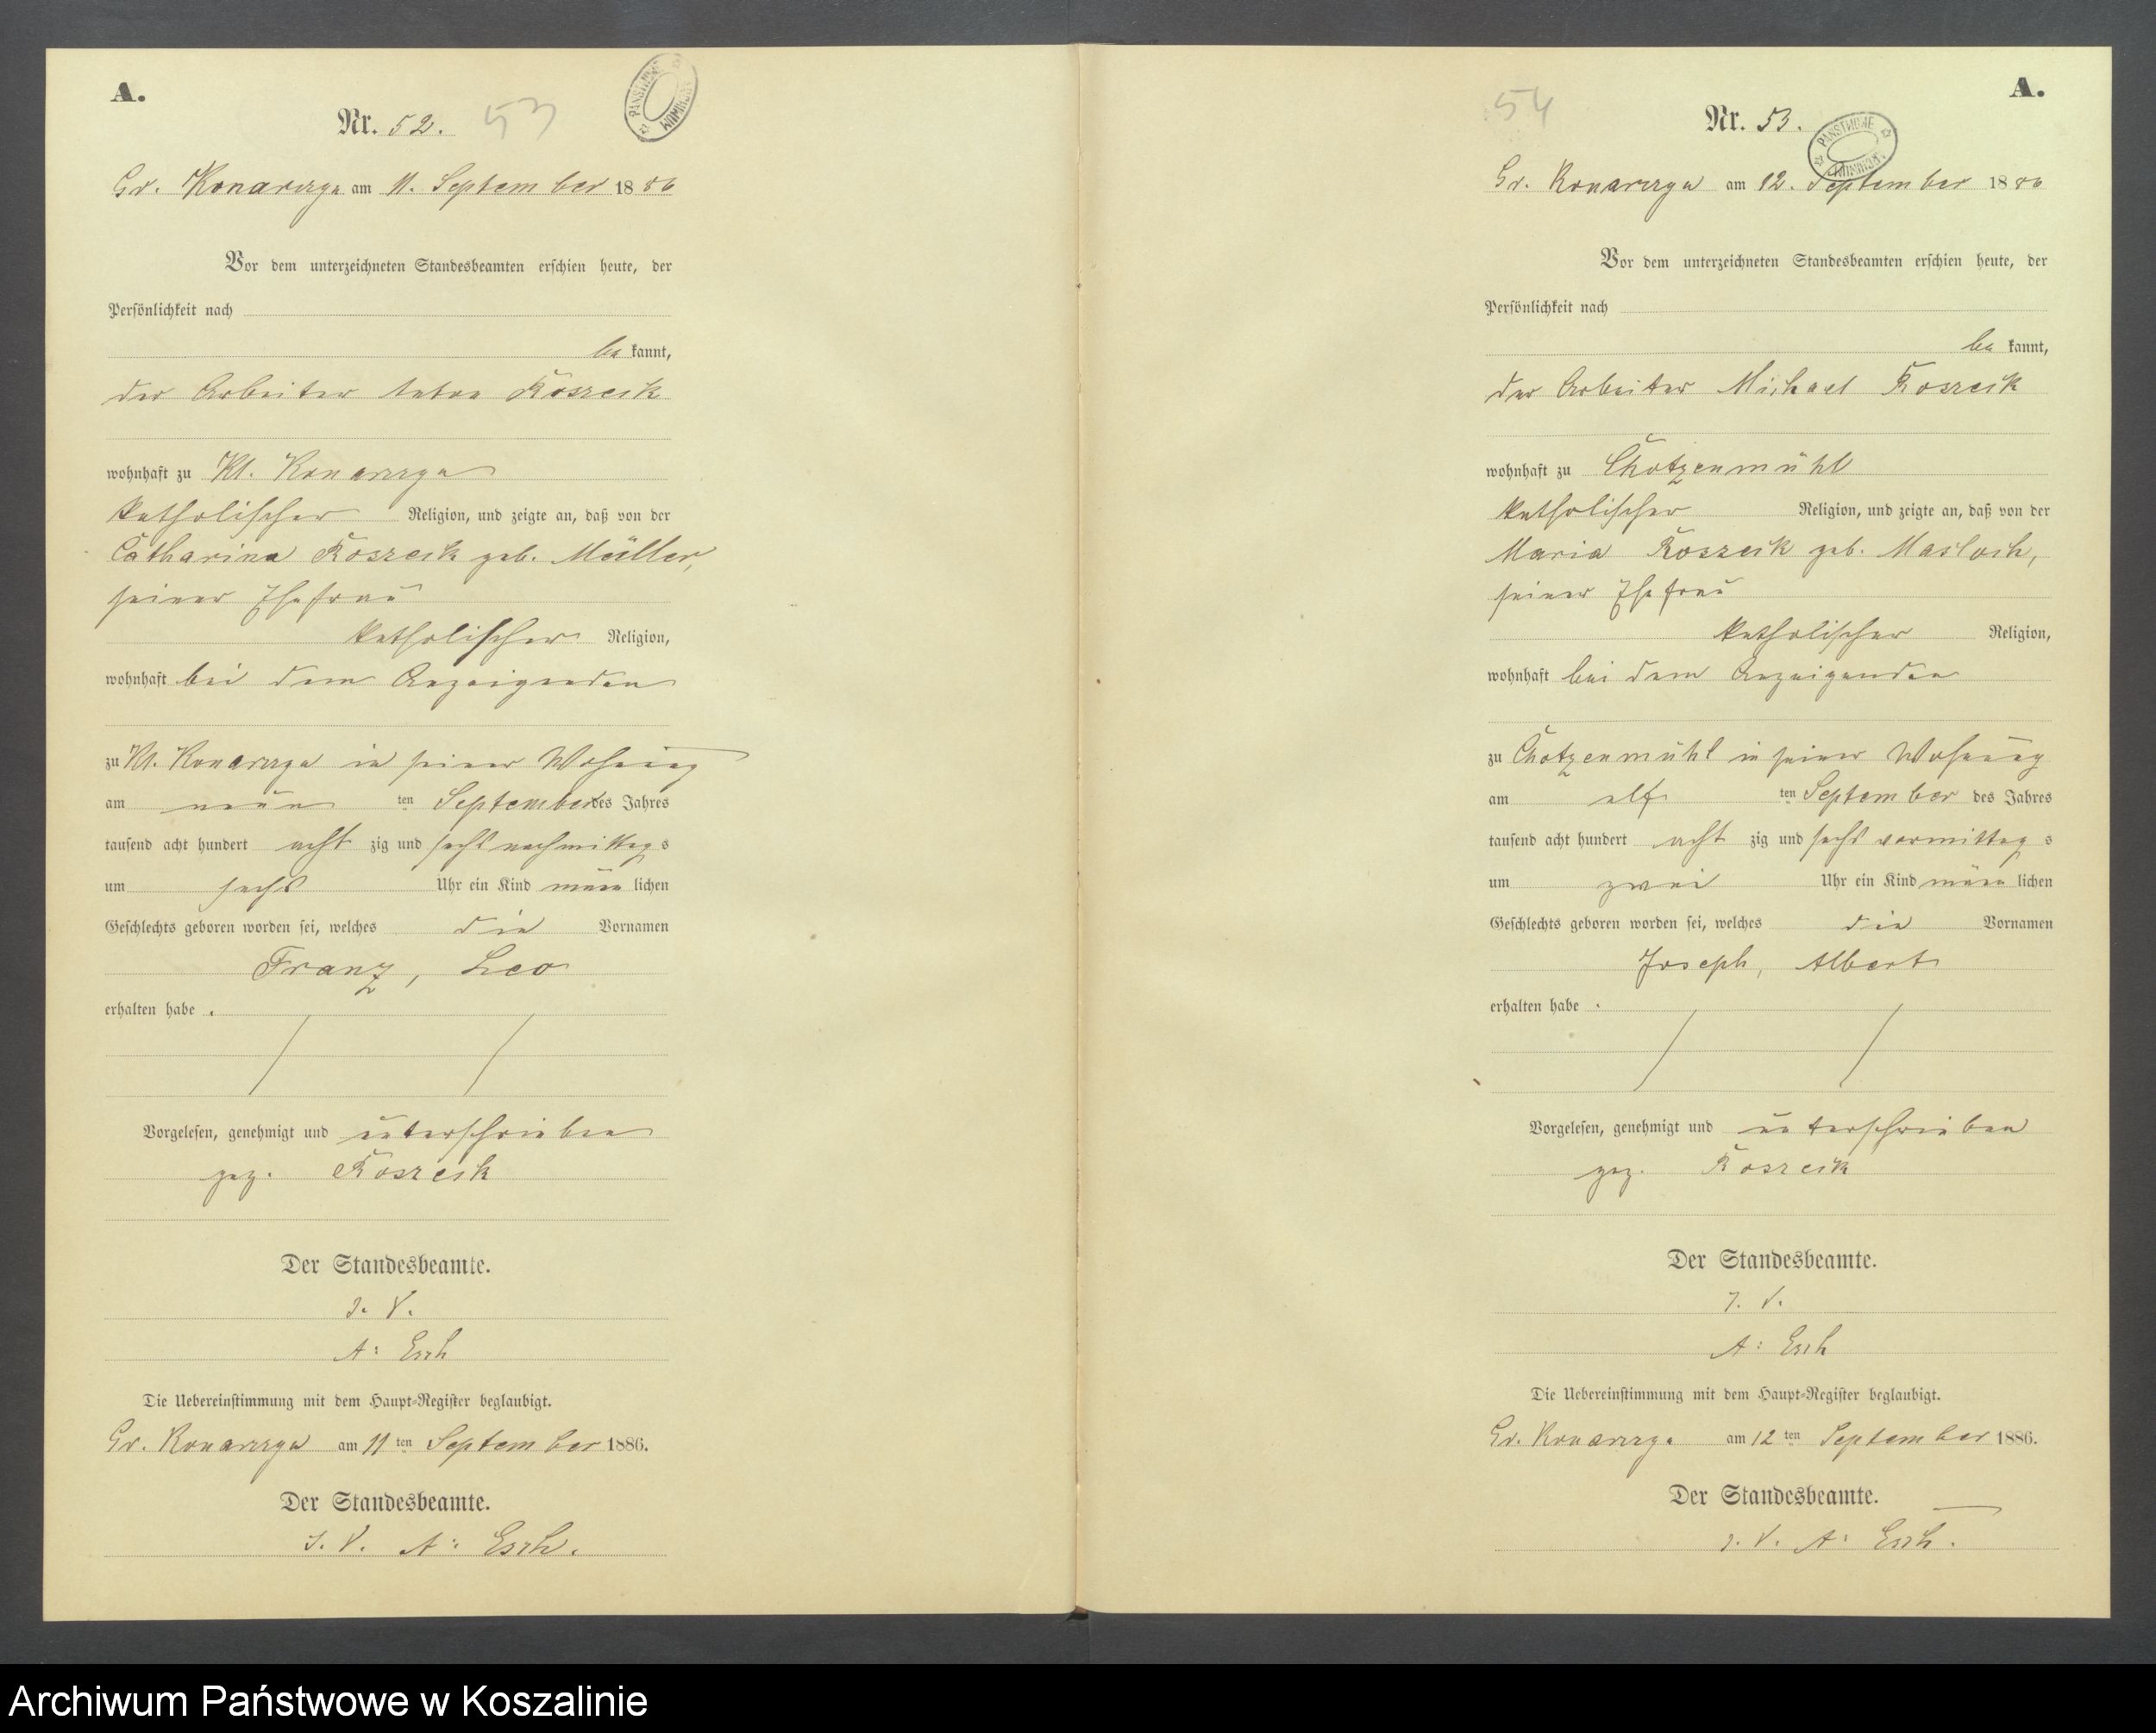 A.
Nr. 52. 53
Gr. Konarczyn am 11. September 1886
Vor dem unterzeichneten Standesbeamten erschien heute, der
Persönlichkeit nach
be kannt,
der Arbeiter Anton Koszcik
wohnhaft zu Kl. Konarczyn
katholischer Religion, und zeigte an, daß von der
Catharina Koszcik geb. Müller,
seiner Ehefrau
katholischer Religion,
wohnhaft bei dem Anzeigenden
zu Kl. Konarczyn in seiner Wohnung
am neun ten September des Jahres
tausend acht hundert acht zig und sechs nachmittag s
um sechs Uhr ein Kind männ lichen
Geschlechts geboren worden sei, welches die Vornamen
Franz, Leo
erhalten habe.
Vorgelesen, genehmigt und unterschrieben
gez. Koszcik
Der Standesbeamte.
J. V.
A: Esch
Die Uebereinstimmung mit dem Haupt-Register beglaubigt.
Gr. Konarczyn am 11 ten September 1886.
Der Standesbeamte.
J. V. A: Esch.
A.
54 Nr. 53.
PANSTWOWE
Gr. Konarczyn am 12. September 1886
Vor dem unterzeichneten Standesbeamten erschien heute, der
Persönlichkeit nach
be kannt,
der Arbeiter Michael Koszcik
wohnhaft zu Chotzenmühl
katholischer Religion, und zeigte an, daß von der
Maria Koszcik geb. Masloch,
seiner Ehefrau
katholischer Religion,
wohnhaft bei dem Anzeigenden
zu Chotzenmühl in seiner Wohnung
am elf ten September des Jahres
tausend acht hundert acht zig und sechs vormittag s
um zwei Uhr ein Kind männ lichen
Geschlechts geboren worden sei, welches die Vornamen
Joseph, Albert
erhalten habe.
Vorgelesen, genehmigt und unterschrieben
gez. Koszcik
Der Standesbeamte.
J. V.
A: Esch
Die Uebereinstimmung mit dem Haupt-Register beglaubigt.
Gr. Konarczyn am 12 ten September 1886.
Der Standesbeamte.
J. V. A: Esch.
Archiwum Państwowe w Koszalinie